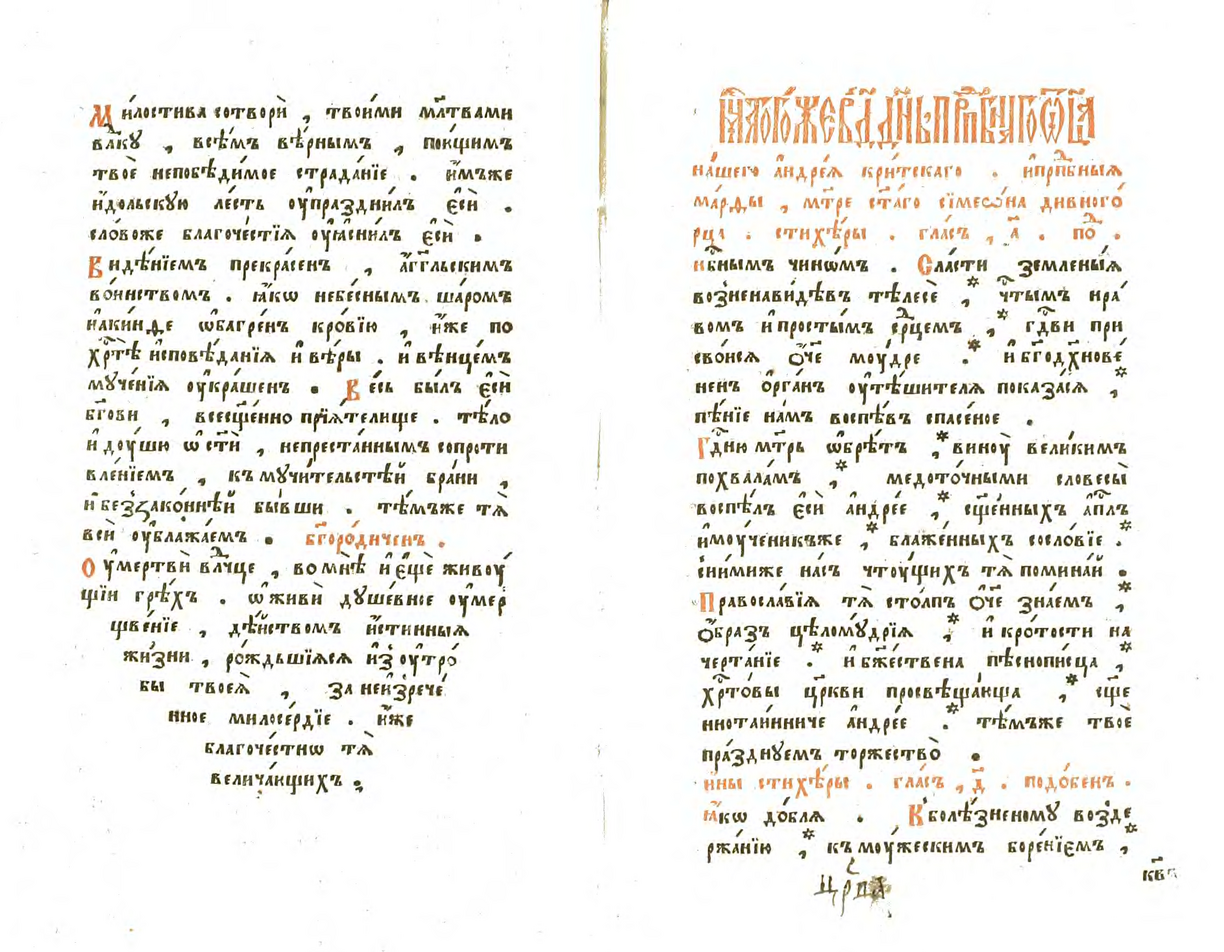 Ми́лостива сотворѝ , твои́ми мл҃твами
влⷣку , всѣ́мъ вѣ́рнымъ , пою́щимъ
твоѐ непобѣди́мое страда́нїе . и҆́мъже
и҆́дольскую ле́сть оу҆праздни́лъ є҆сѝ .
сло́воже благоче́стїѧ оу҆ѧсни́лъ є҆сѝ .
Видѣ́нїемъ прекра́сенъ , а҆́гг҃льскимъ
во́инствомъ . ꙗ҆́кѡ небе́снымъ ша́ромъ
ѡ҆багре́нъ кро́вїю , и҆́же по
хрⷭ҇тѣ̀ и҆сповѣ́данїѧ и҆ вѣ́ры . и҆ вѣнце́мъ
мꙋче́нїѧ оу҆кра́шенъ . Ве́сь бы́лъ є҆сѝ
бг҃ови , всесщ҃е́нно прїѧ́телище . тѣ́ло
и҆ до́ушю ѡ҆ст҃ѝ , непреста́ннымъ сопроти
вле́нїемъ , къ мꙋчи́тельстѣй бра́ни ,
и҆ беззако́ннѣй бы́вши . тѣ́мъже тѧ̀
всѝ оу҆блажа́емъ . бг҃оро́диченъ .
Оу҆мертвѝ влⷣчце , во мнѣ̀ и҆ є҆щѐ живоу́
щїи грѣ́хъ . ѡ҆живѝ дꙋше́вное оу҆мер
щве́нїе , дѣ́йствомъ и҆́стинныѧ
жи́зни , ро́ждьшїѧсѧ и҆з̾ оу҆тро́
бы твоеѧ̀ , за неи҆зрече́
нное милосе́рдїе . и҆́же
благоче́стнѡ тѧ̀
велича́ющихъ .
мⷭ҇ца того́же в҃ дн҃ь прпⷣбнаго ѻ҆ц҃а
на́шего а҆ндре́ѧ кри́тскаго . и҆ прпⷣбныѧ
ма́рѳы , мт҃ре ст҃а́го сїмеѡ́на ди́вного
рца . стихѣ́ры . гла́съ , а҃ . поⷣ .
нбⷭ҇нымъ чинѡ́мъ . Сла́сти земленыѧ
возненави́дѣвъ тѣлесѐ , * чⷭ҇тымъ нра́
вомъ и҆ просты́мъ срⷣцемъ , * гдⷭ҇ви при
сво́исѧ ѻ҆́ч҃е моу́дре . * и҆ бг҃одх҃нове́
ненъ о҆рга́нъ оу҆тѣ́шителѧ показа́сѧ , *
пѣ́нїе на́мъ воспѣ́въ спасе́ное .
Гдⷭ҇ню мт҃рь ѡ҆брѣ́тъ , * виноу̀ вели́кимъ
похвала́мъ , * медото́чными словесы̀
воспѣ́лъ є҆сѝ а҆ндре́е , * сщ҃е́нныхъ а҆пⷭ҇лъ
и҆ моу́ченикъже , * блаже́нныхъ сосло́вїе . *
сни́миже на́съ чтоу́щихъ тѧ̀ помина́й .
Правосла́вїѧ тѧ̀ сто́лпъ ѻ҆́ч҃е зна́емъ , *
ѻ҆́бразъ цѣломꙋ́дрїѧ , * и҆ кро́тости на
черта́нїе . * и҆ бж҃е́ствена пѣснопи́сца , *
хрⷭ҇то́вы цр҃кви просвѣща́юща , * сще
ннота́инниче а҆ндре́е . * тѣ́мъже твоѐ
пра́зднꙋемъ торжество̀ .
и҆́ны стихѣ́ры . гла́съ , д҃ . подо́бенъ .
ꙗ҆́кѡ до́блѧ . К̾болѣ́зненомꙋ возде
ржа́нїю , * къ моу́жескимъ боре́нїемъ , *